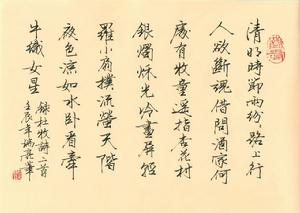 清明時節雨紛路上行
人欲斷魂借問酒家何
處有牧童遙指杏花村
銀燭秋光冷畫屏輕
羅小扇撲流螢天階
夜色涼如水臥看牽
牛織女星
錄杜牧詩二首
壬辰年